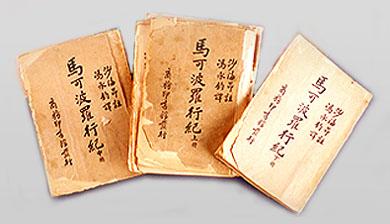 沙海昂註
馮承鈞譯
馬可波羅行紀 中冊
商務印書館發行
沙海昂註
馮承鈞譯
馬可波羅行紀 上冊
商務印書館發行
沙海昂註
馮承鈞譯
馬可波羅行紀 下冊
商務印書館發行